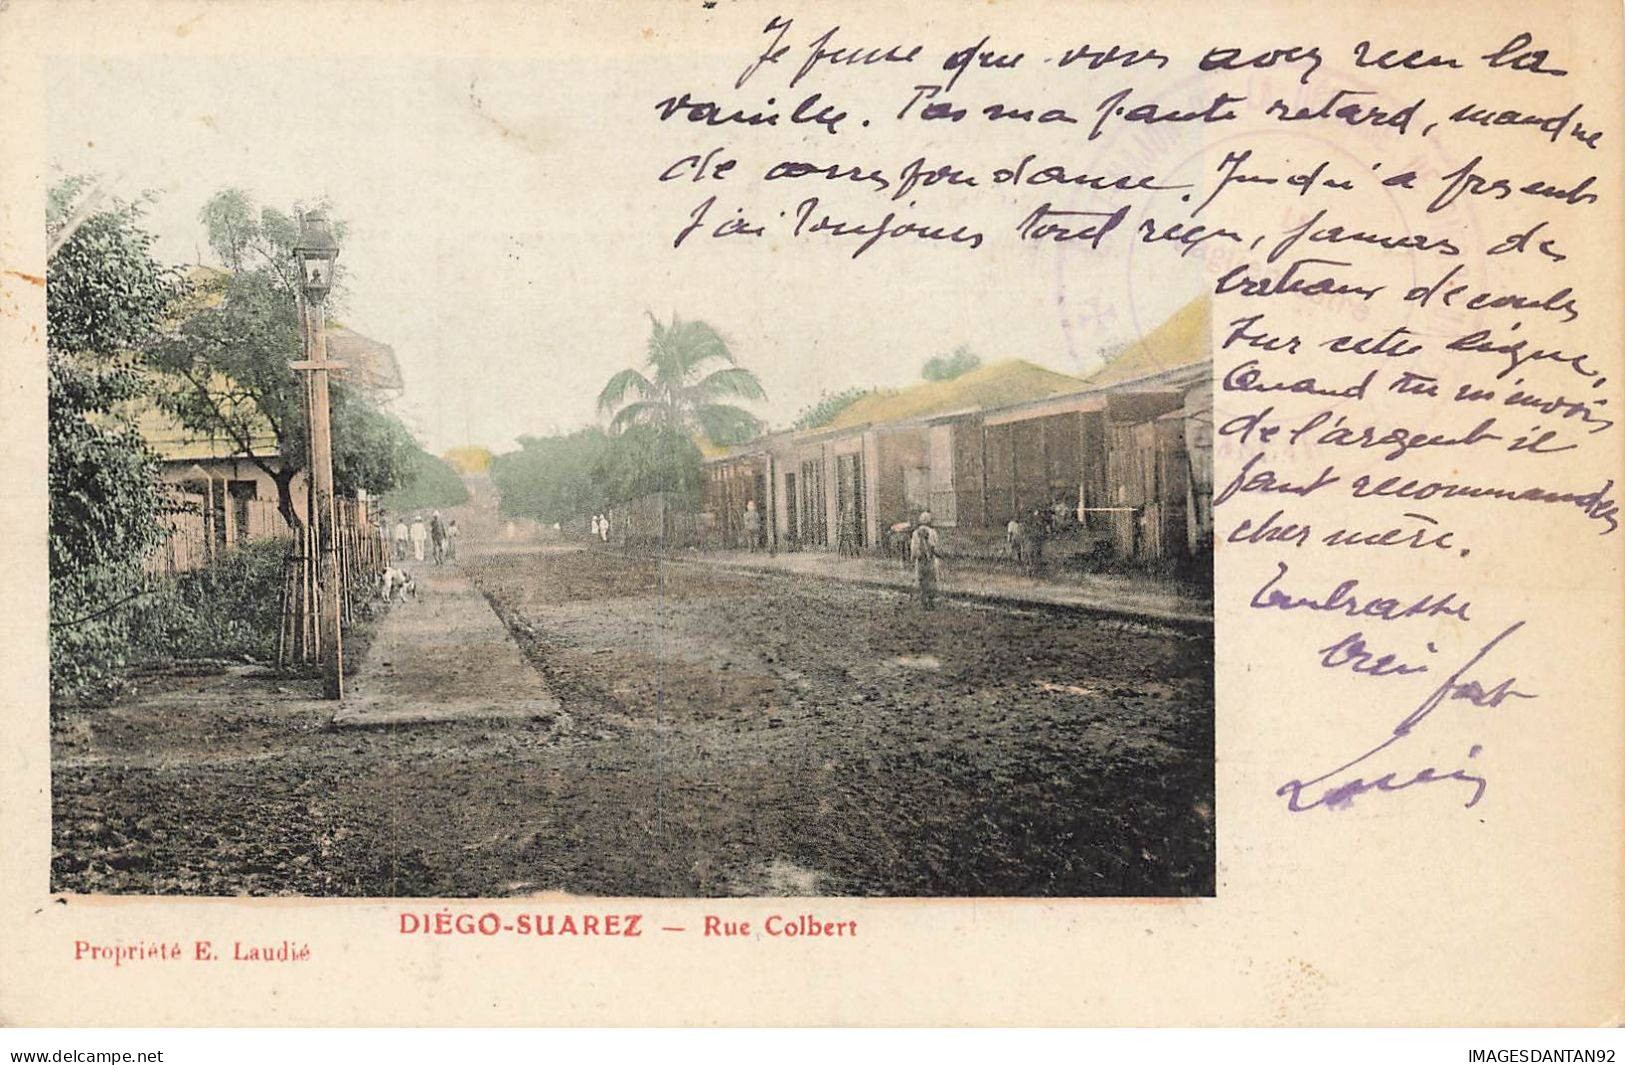 Je pense que vous avez reçu la
vanille. Pas ma faute retard, manque
de correspondance. Jusqu'à présent
j'ai toujours tout reçu, jamais de
bateaux de coulés
sur cette ligne,
Quand tu m'envois
de l'argent il
faut recommander
cher mère.
Embrasse
bien fort
Lucien
DIÉGO-SUAREZ — Rue Colbert
Propriété E. Laudié
delcampe.net
IMAGESDANTAN92